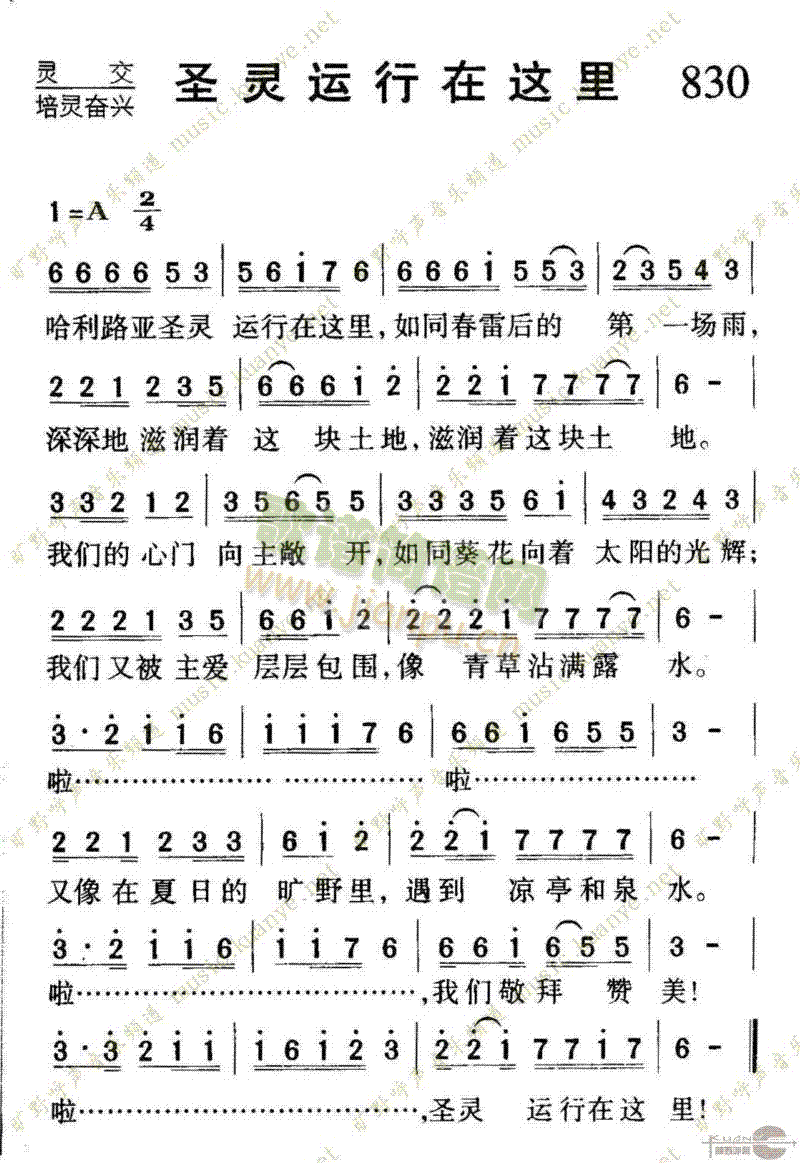 灵 交
培灵奋兴
圣灵运行在这里 830
1=A 2/4
6 6 6 6 5 3 | 5 6 i 7 6 | 6 6 6 i 5 5 3 | 2 3 5 4 3 |
哈利路亚圣灵 运行在这里,如同春雷后的 第 一场雨,
2 2 1 2 3 5 | 6 6 6 i 2 | 2 2 i 7 7 7 7 | 6 - |
深深地 滋润着 这 块土地,滋润着这块土 地。
3 3 2 1 2 | 3 5 6 5 5 | 3 3 3 5 6 i | 4 3 2 4 3 |
我们的心门 向主敞 开,如同葵花向着 太阳的光辉;
2 2 2 1 3 5 | 6 6 i 2 | 2 2 2 i 7 7 7 7 | 6 - |
我们又被主爱 层层包围,像 青草沾满露 水。
3 · 2 i i 6 | i i i 7 6 | 6 6 i 6 5 5 | 3 - |
啦…………………… 啦……………………
2 2 1 2 3 3 | 6 i 2 | 2 2 i 7 7 7 7 | 6 - |
又像在夏日的 旷野里,遇到 凉亭和泉 水。
3 · 2 i i 6 | i i 7 6 | 6 6 i 6 5 5 | 3 - |
啦……………………………,我们敬拜 赞 美!
3 · 3 2 i i | i 6 i 2 3 | 2 2 i 7 7 i 7 | 6 - ‖
啦……………………………,圣灵 运行在这 里!
歌谱简谱网
www.jianpu.cn
旷野呼声音乐频道 music.kuanye.net